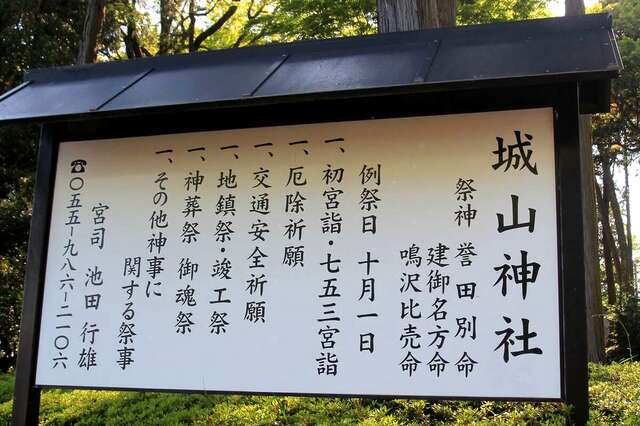 城山神社
祭神 誉田別命
建御名方命
鳴沢比売命
例祭日 十月一日
一、初宮詣・七五三宮詣
一、厄除祈願
一、交通安全祈願
一、地鎮祭・竣工祭
一、神葬祭・御魂祭
一、その他神事に
関する祭事
宮司 池田行雄
☎〇五五ー九八六ー二一〇六